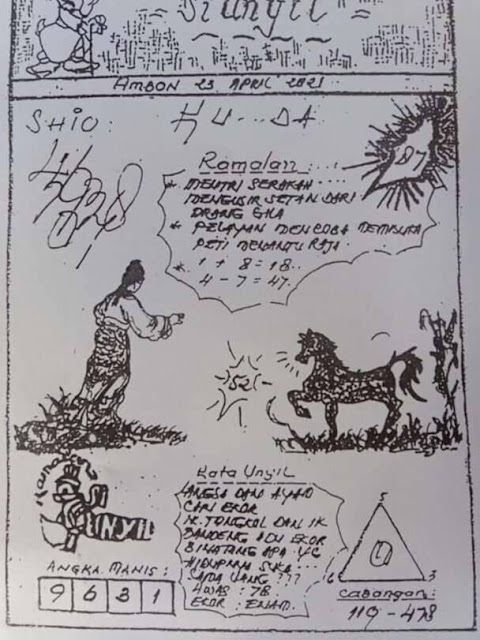 = Si Unyil =
AMBON 23 APRIL 2021
SHIO: KU...DA
87
Ramalan:....
* MENTRI SERAKAH....
MENGUSIR SETAN DARI
ORANG GILA
* PELAYAN MENCOBA MEMBUKA
PETI MENANTU RAJA
* 1 + 8 = 18..
4 - 7 = 47.
52
Kata UnyiL
ANGSA DAN AYAM
CARI EKOR
IK. TONGKOL DAN IK
BANDENG ADU EKOR
BINATANG APA YG
HIDUPNYA SUKA...
SAMA UANG ???
AWAS: 78
EKOR: ENAM.
SI
UNYIL
ANGKA MANIS:
9 6 3 1
5
6 3
Cabangan:
119 - 478